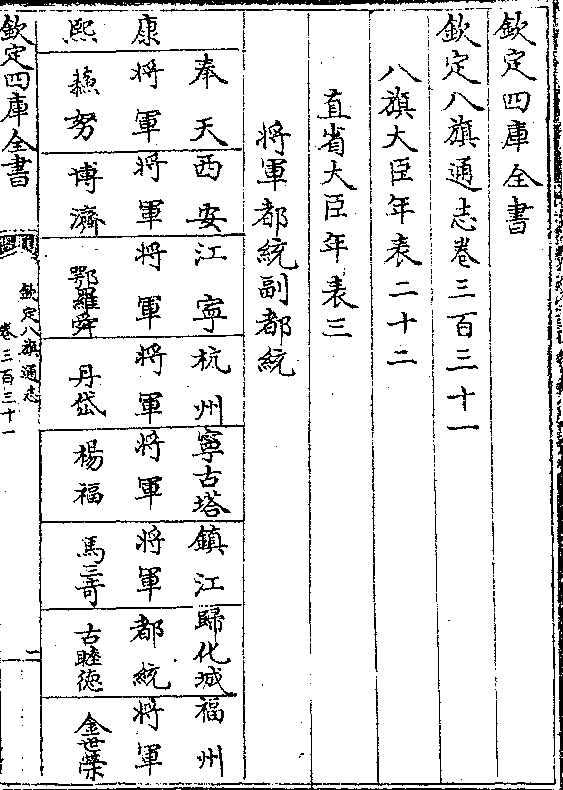 欽定四庫全書
欽定八旗通志卷三百三十一
八旗大臣年表二十二
直省大臣年表三
將軍都統副都統
奉天將軍
西安將軍
江寧將軍
杭州將軍
寧古塔將軍
鎮江將軍
歸化城都統
福州將軍
康熙
蘇努
博濟
鄂羅舜
丹岱
楊福
馬三哥
古睦德
金世榮
欽定四庫全書
欽定八旗通志
卷三百三十一
一